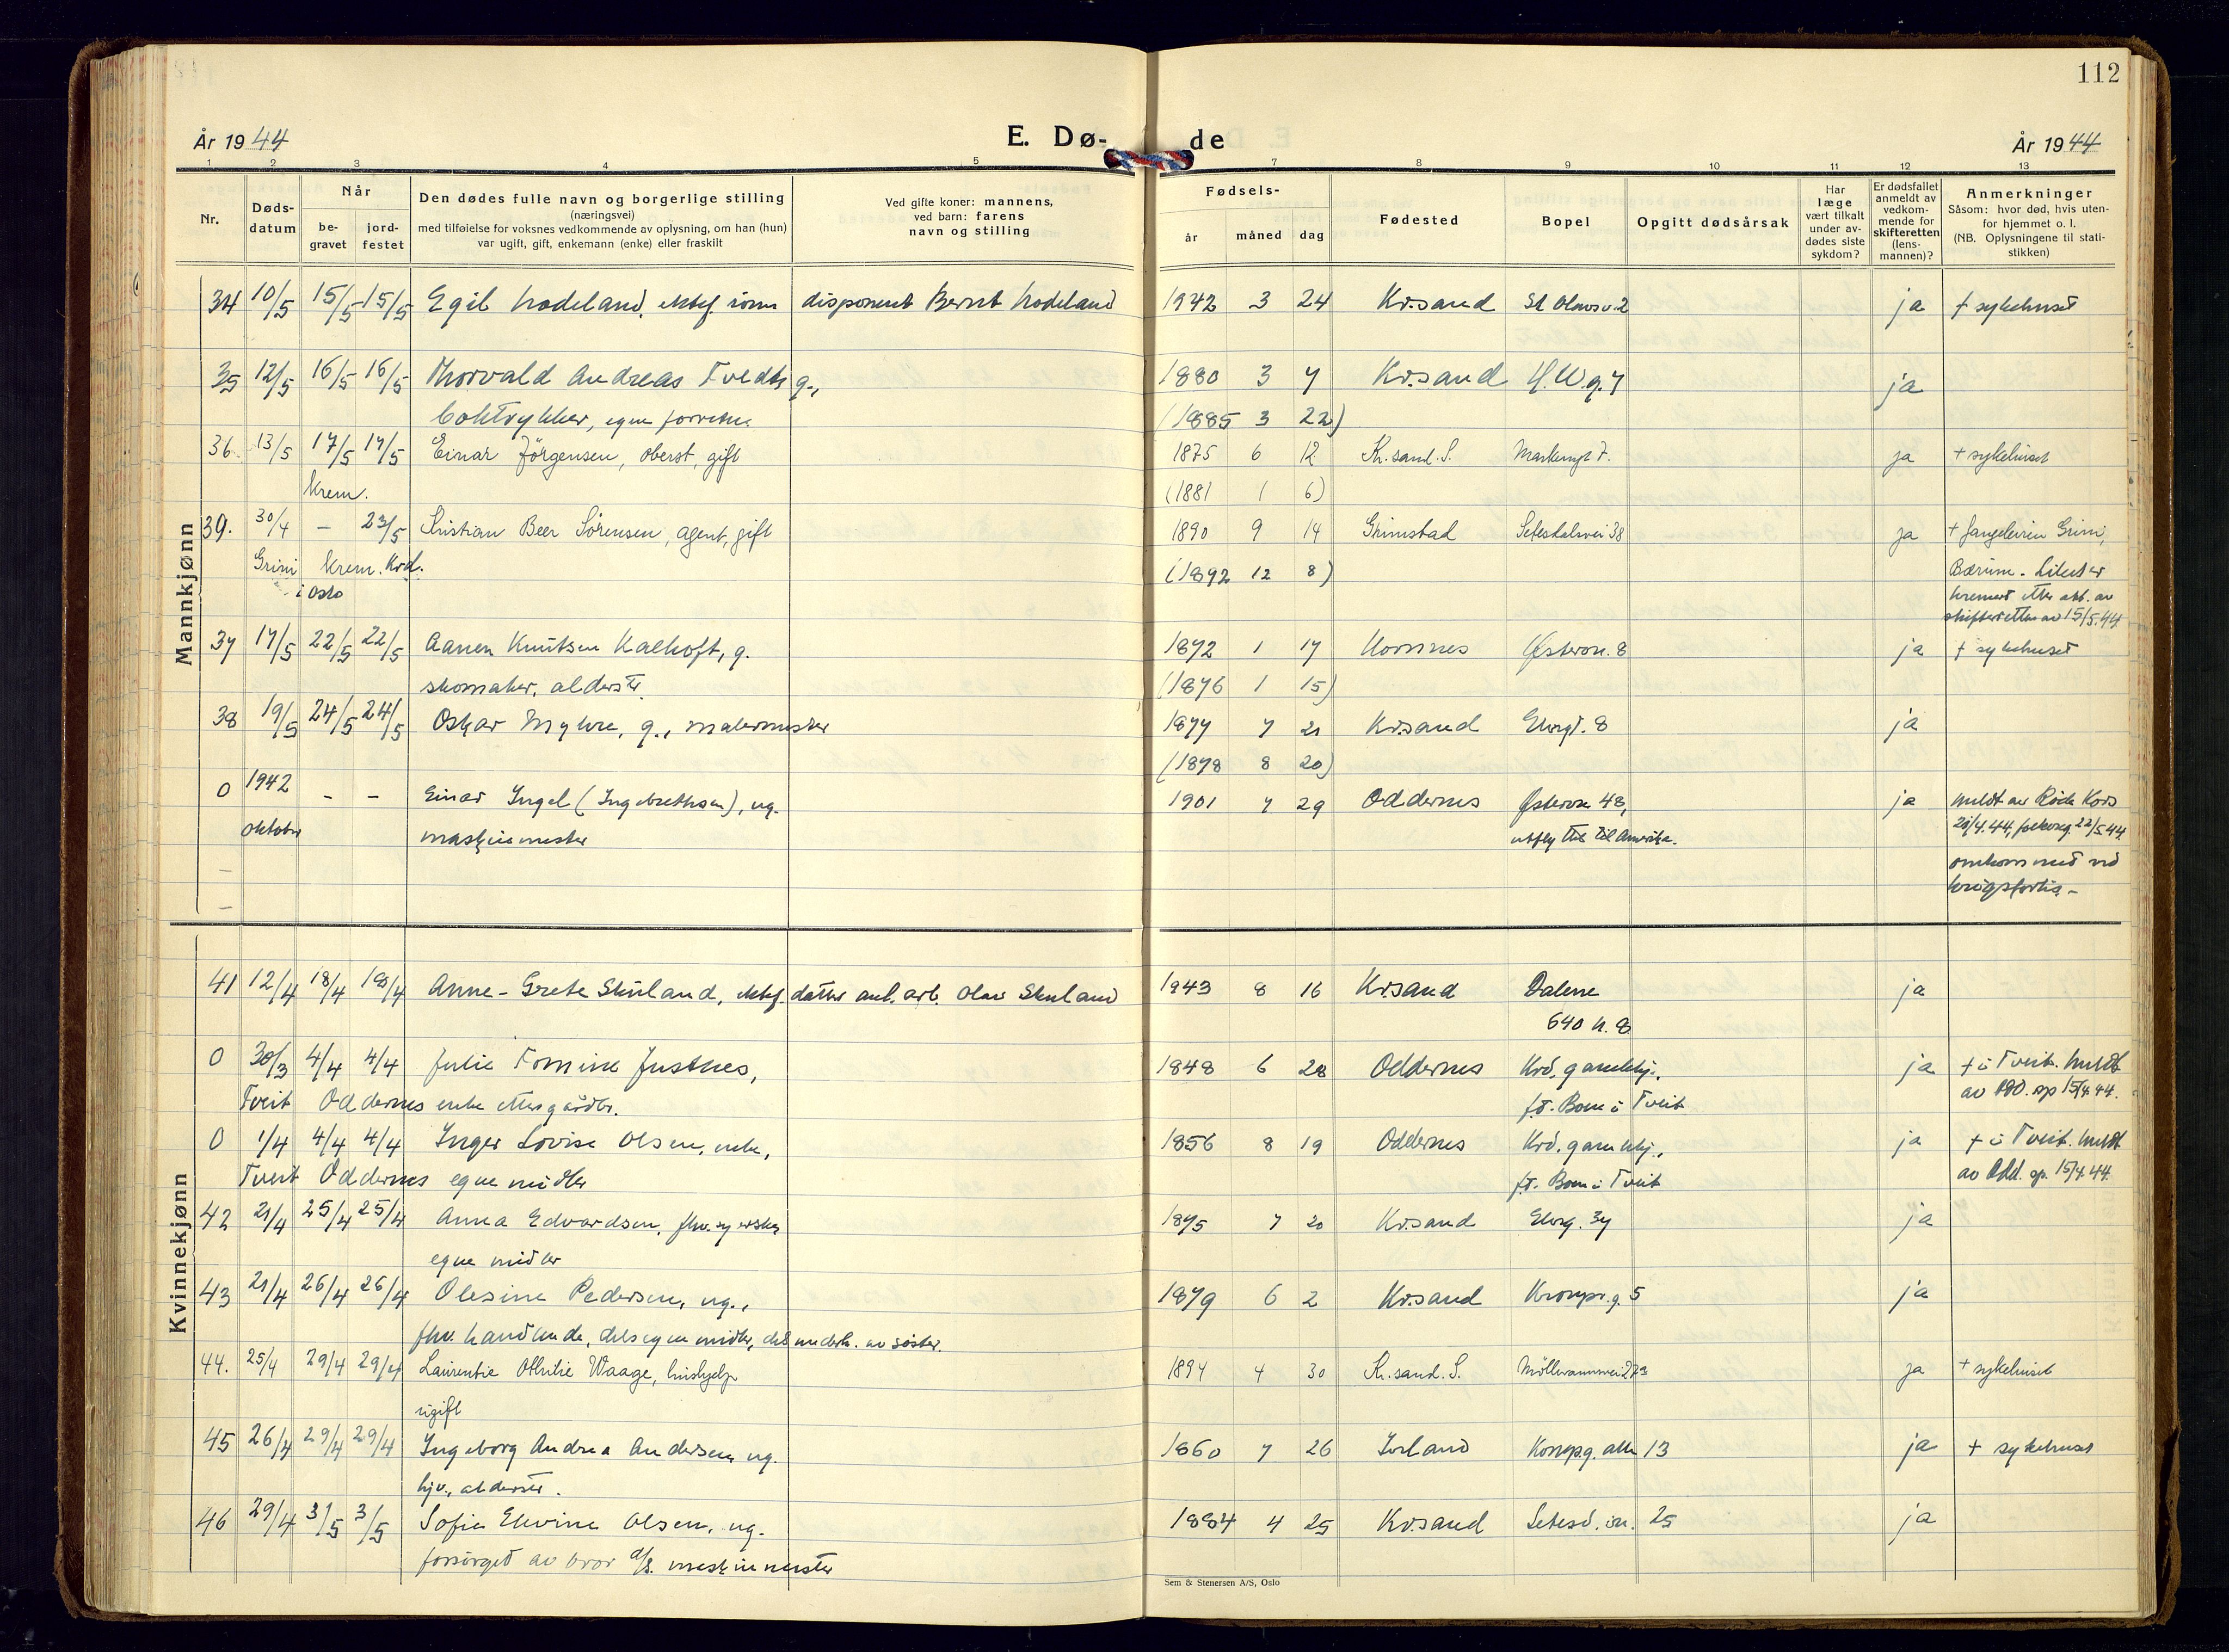 112
År 1944
E. Dø-
de
År 1944
1 2 3 4 5 7 8 9 10 11 12 13
Nr.
Døds-
datum
Når
be-
gravet
jord-
festet
Den dødes fulle navn og borgerlige stilling
(næringsvei)
med tilføielse for voksnes vedkommende av oplysning, om han (hun)
var ugift, gift, enkemann (enke) eller fraskilt
Ved gifte koner: mannens,
ved barn: farens
navn og stilling
Fødsels-
år måned dag
Fødested
Bopel
Opgitt dødsårsak
Har
læge
vært tilkalt
under av-
dødes siste
sykdom?
Er dødsfallet
anmeldt av
vedkom-
mende for
skifteretten
(lens-
mannen)?
Anmerkninger
Såsom: hvor død, hvis uten-
for hjemmet o. l.
(NB. Oplysningene til stati-
stikken)
Mannkjønn
34 10/5 15/5 15/5 Egil Hodeland, ektef. sønn disponent Bernt Hodeland 1942 3 24 Kr.sand St Olavsv. 2 ja † sykehuset
35 12/5 16/5 16/5 Thorvald Andreas Tvedt, g., 1880 3 7 Kr.sand H.W.g. 7 ja
boktrykker, egen forretn. (1885 3 22)
36. 13/5 17/5 17/5 Einar Jörgensen, oberst, gift 1875 6 12 Kr.sand. S. Markensgt 7. ja + sykehuset
krem. (1881 1 6)
39. 30/4 – 23/5 Kristian Beer Sörensen, agent, gift 1890 9 14 Grimstad Setesdalsvei 38 ja + fangeleiren Grini,
Grini krem. Krd. (1892 12 8) Bærum. Liket er
i Oslo kremert etter att. av
skifteretten av 15/5.44
37 17/5 22/5 22/5 Aanen Knutsen Kalhoft, g. 1872 1 17 Hornnes Østerv. 8 ja † sykehuset
skomaker, alderstr. (1876 1 15)
38 19/5 24/5 24/5 Oskar Myhre, g., malermester 1877 7 21 Kr.sand Elvegt. 8 ja
(1878 8 20)
0 1942 – – Einar Ingel (Ingebrethsen), ug. 1901 7 29 Oddernes Østerv. 48, ja meldt av Røde Kors
oktober maskinmester utfly til Amerika. 21/4.44, folkereg. 22/5 44
omkom med ved
krigsforlis –
Kvinnekjønn
41 12/4 18/4 18/4 Anne-Grete Skuland, ektef. datter anl. arb. Olav Skuland 1943 8 16 Kr.sand Dalene ja
640 h. 8
0 30/3 4/4 4/4 Julie Tomine Justnes, 1848 6 28 Oddernes Krd. gamlehj., ja + i Tveit. Meldt
Tveit Oddernes enke etter gårdbr. f.t. Boen i Tveit av Odd. sp 15/4.44.
0 1/4 4/4 4/4 Inger Lovise Olsen, enke, 1856 8 19 Oddernes Krd. gamlehj., ja + i Tveit. Meldt
Tveit Oddernes egne midler f.t. Boen i Tveit av Odd. sp. 15/4.44.
42 21/4 25/4 25/4 Anna Edvardsen, fhv. syerske, 1875 7 20 Kr.sand Elveg. 37 ja
egne midler
43 21/4 26/4 26/4 Olesine Pedersen, ug., 1879 6 2 Kr.sand Kronpr.g. 5 ja
fhv. handlende, dels egne midler, dels underh. av søster.
44. 25/4 29/4 29/4 Laurentse Othilie Waage, hushjelp 1894 4 30 Kr.sand. S. Möllevannsvei 27a ja + sykehuset
ugift
45 26/4 29/4 29/4 Ingeborg Andrea Andersen, ug. 1860 7 26 Iveland Kongsg. alle 13 ja + sykehuset
hjv., alderstr.
46 29/4 3/5 3/5 Sofie Elvine Olsen, ug. 1884 4 25 Kr.sand Setesd. vn. 25 ja
forsørget av bror a/s. maskinmester
Sem & Stenersen A/S, Oslo